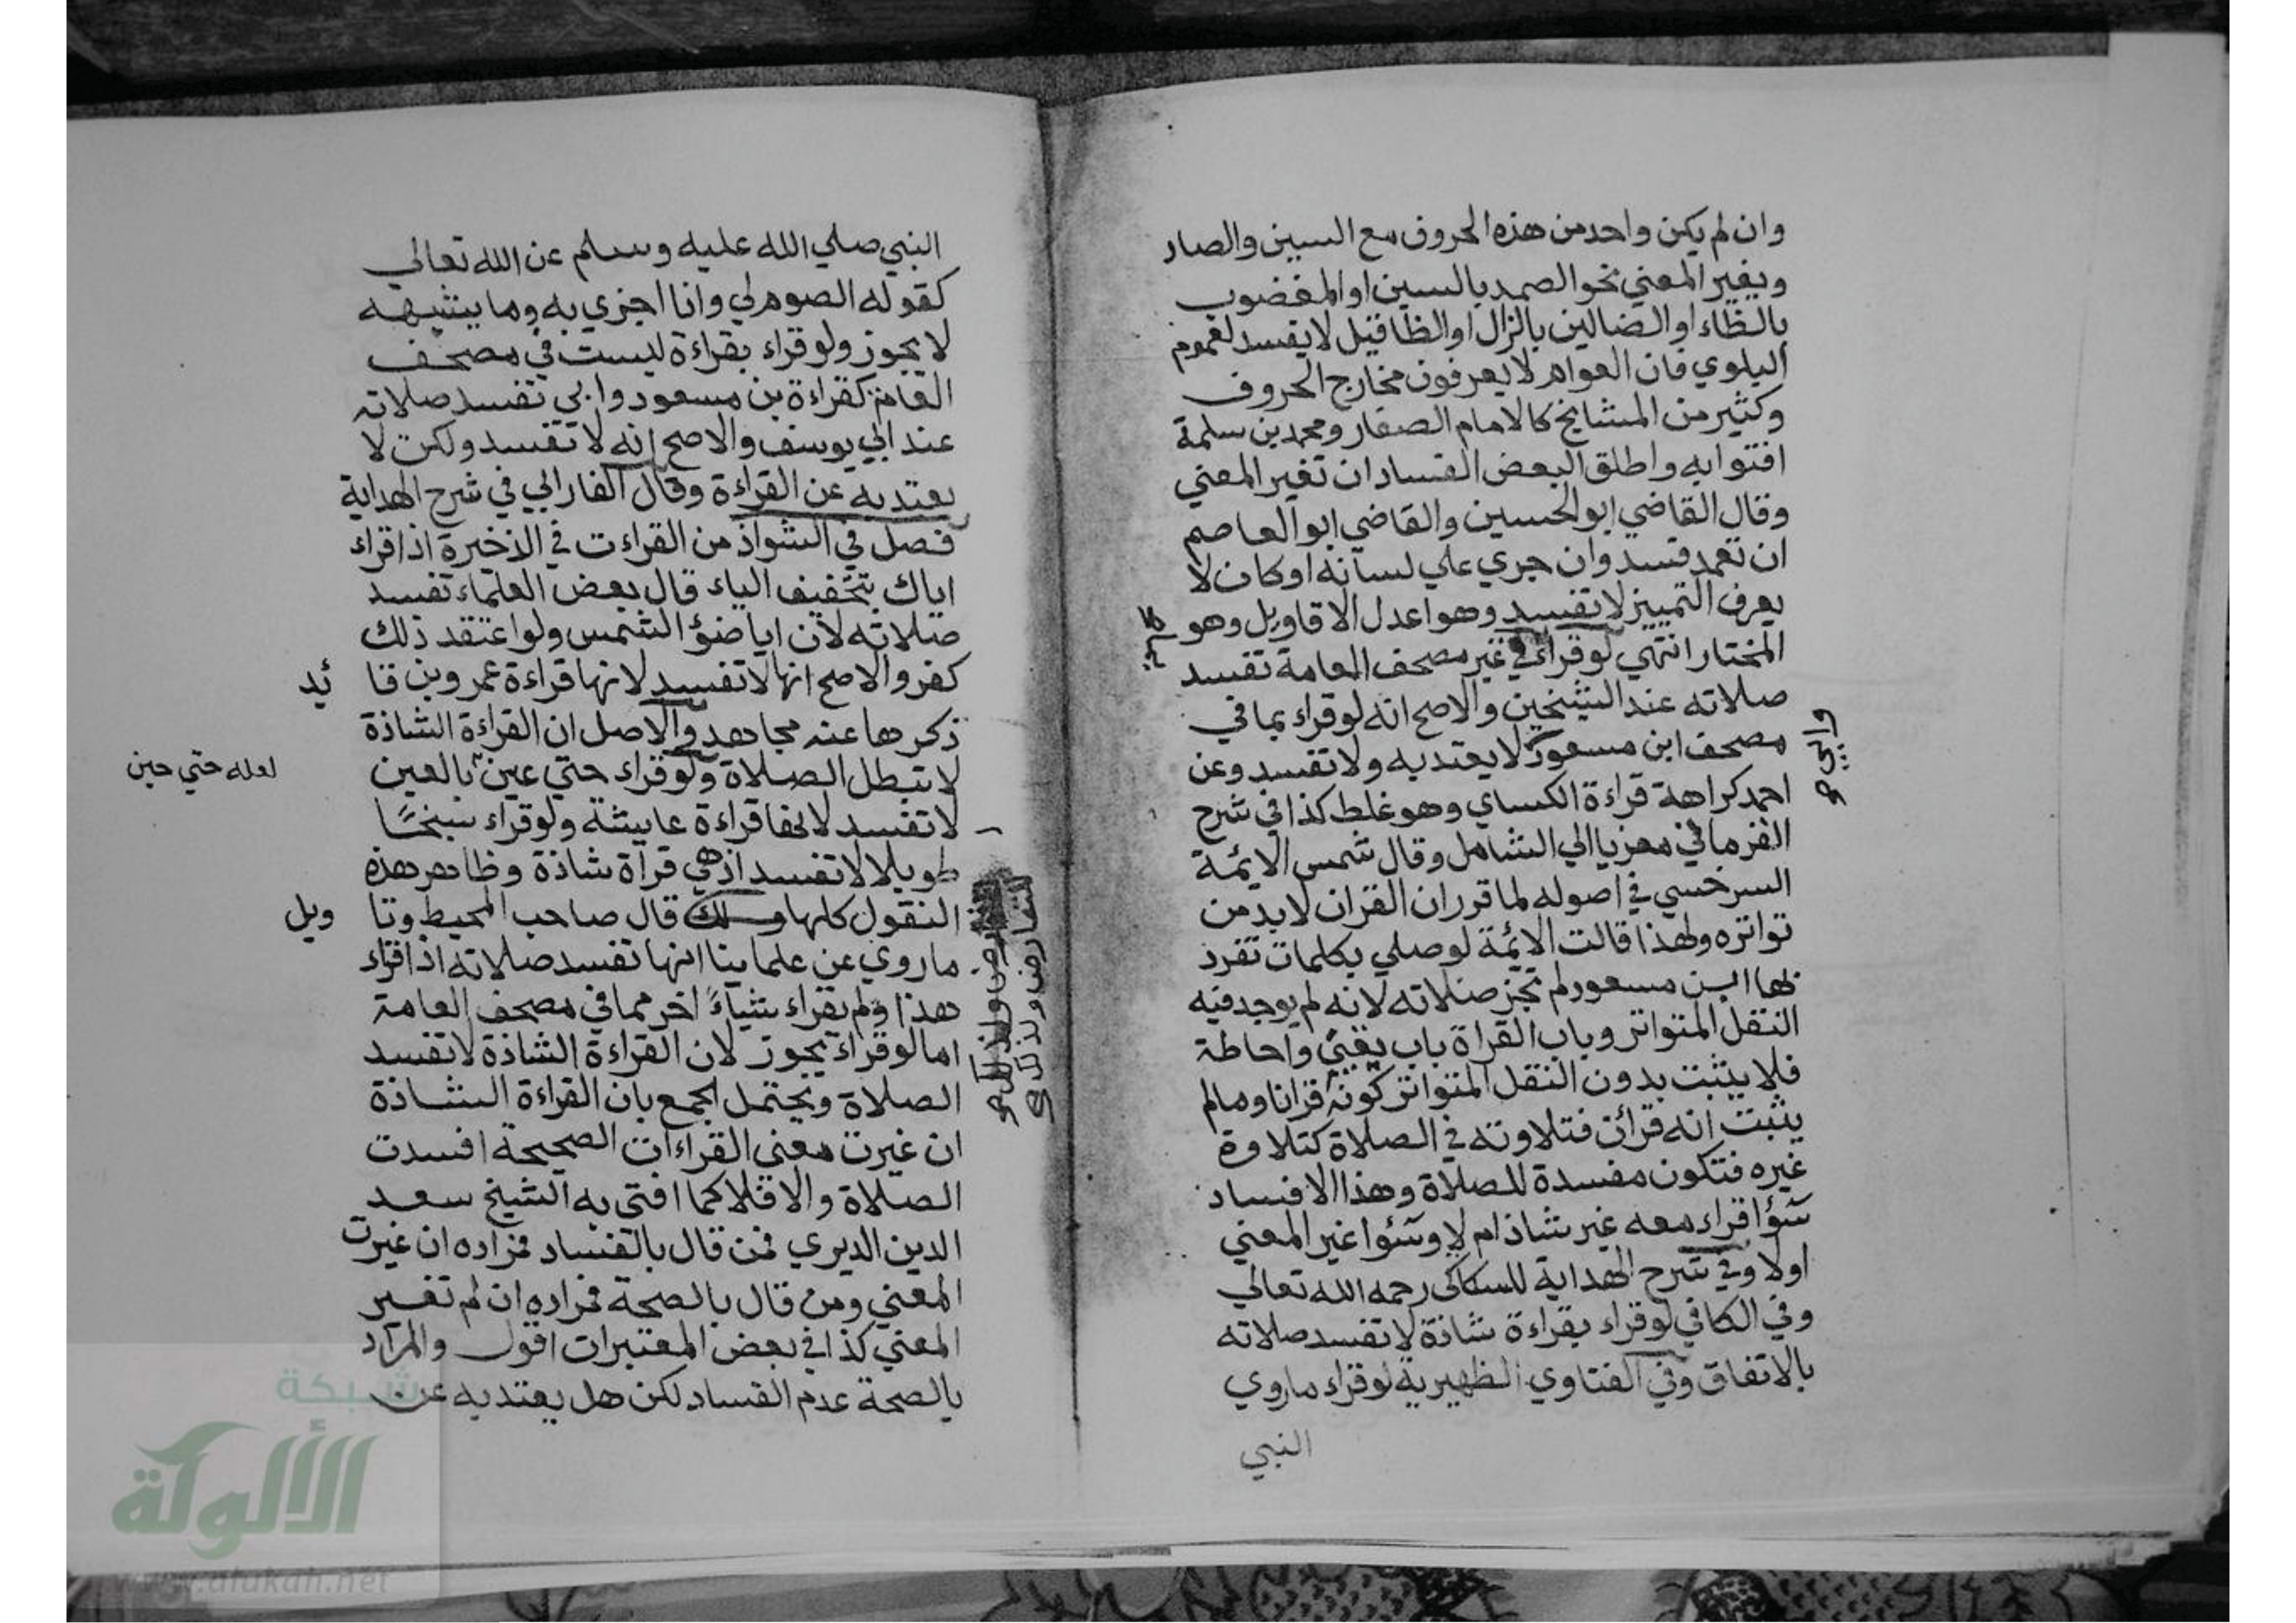 وان لم يكن واحد من هذه الحروف مع السين والصاد
ويغير المعني نحو الصمد بالسين او المغضوب
بالظاء او الضالين بالزال او الظا قيل لا يفسد لعموم
البلوي فان العوام لا يعرفون مخارج الحروف
وكثير من المشايخ كالامام الصفار ومحمد بن سلمة
افتوا به واطلق البعض الفساد ان تغير المعني
وقال القاضي ابو الحسين والقاضي ابو العاصم
ان تعمد فسد وان جري علي لسانه او كان لا
يعرف التمييز لا تفسد وهو اعدل الاقاويل وهو
المختار انتهي لو قراء في غير مصحف العامة تفسد
صلاته عند الشيخين والاصح انه لو قراء بما في
مصحف ابن مسعود لا يعتد به ولا تفسد وعن
وابي
احمد كراهة قراءة الكساي وهو غلط كذا في شرح
الغزماني معزيا الي الشامل وقال شمس الايمة
السرخسي في اصوله لما قرر ان القران لا بد من
تواتره ولهذا قالت الايمة لو صلي بكلمات تفرد
بها ابن مسعود لم تجز صلاته لانه لم يوجد فيه
النقل المتواتر وباب القراة باب يقين واحاطة
فلا يثبت بدون النقل المتواتر كونه قرانا وما لم
يثبت انه قرأن فتلاوته في الصلاة كتلاوة
غيره فتكون مفسدة للصلاة وهذا الافساد
سؤا قراء معه غير شاذ ام لا وسؤا غير المعني
اولا وفي شرح الهداية للسكاكي رحمه الله تعالي
وفي الكافي لو قراء بقراءة شاذة لا تفسد صلاته
بالاتفاق وفي الفتاوي الظهيرية لو قراء ما روي
النبي
النبي صلي الله عليه وسلم عن الله تعالي
كقوله الصوم لي وانا اجزي به وما يشبهه
لا يجوز ولو قراء بقراءة ليست في مصحف
العامة كقراءة بن مسعود وابي تفسد صلاته
عند ابي يوسف والاصح انه لا تفسد ولكن لا
يعتد به عن القراءة وقال الفارابي في شرح الهداية
فصل في الشواذ من القراءت في الذخيرة اذا قراء
اياك بتخفيف الياء قال بعض العلماء تفسد
صلاته لان ايا ضؤ الشمس ولو اعتقد ذلك
كفر والاصح انها لا تفسد لانها قراءة عمرو بن فا ئد
ذكرها عنه مجاهد والاصل ان القراءة الشاذة
لا تبطل الصلاة ولو قراء حتي عين بالعين
لعله حتي حين
لا تفسد لانها قراءة عايشة ولو قراء سبخا
طويلا لا تفسد اذ هي قراة شاذة وظاهر هذه
النقول كلها قال صاحب المحيط وتا ويل
التعارض ولذلك
ما روي عن علماينا انها تفسد صلاته اذا قراء
هذا ولم يقراء شياء اخر مما في مصحف العامة
اما لو قراء يجوز لان القراءة الشاذة لا تفسد
الصلاة ويحتمل الجمع بان القراءة الشاذة
ان غيرت معني القراءات الصحيحة افسدت
الصلاة والا فلا كما افتي به الشيخ سعد
الدين الديري فمن قال بالفساد فمراده ان غيرت
المعني ومن قال بالصحة فمراده ان لم تغير
المعني كذا في بعض المعتبرات اقول والمراد
بالصحة عدم الفساد لكن هل يعتد به عن
شبكة
الألوكة
www.alukah.net